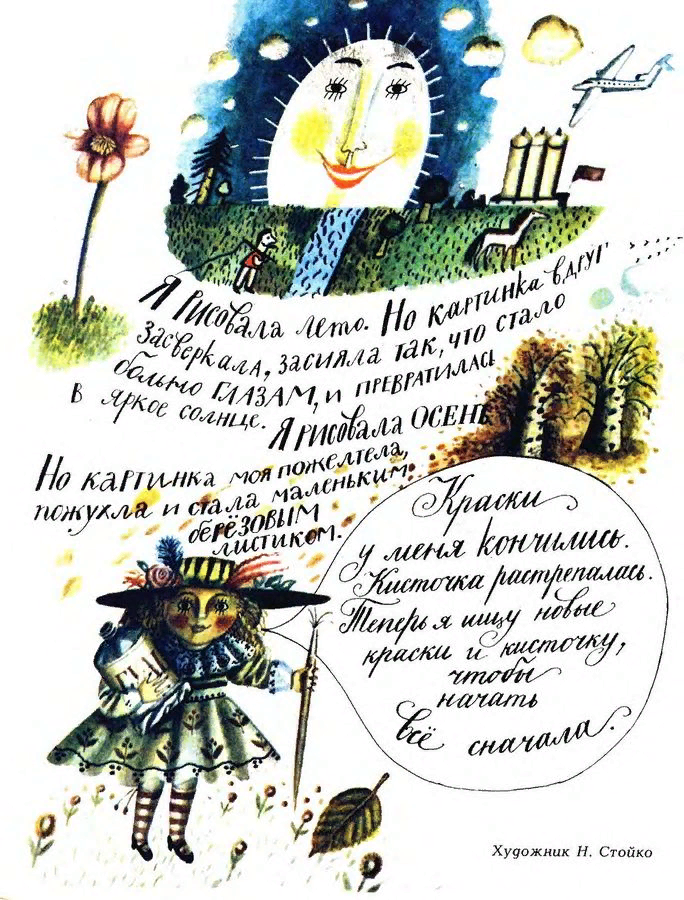 Я рисовала лето. Но картинка вдруг
засверкала, засияла так, что стало
больно глазам, и превратилась
в яркое солнце.
Я рисовала осень
Но картинка моя пожелтела,
пожухла и стала маленьким
берёзовым
листиком.
Краски
у меня кончились.
Кисточка растрепалась.
Теперь я ищу новые
краски и кисточку,
чтобы
начать
всё сначала.
Художник Н. Стойко